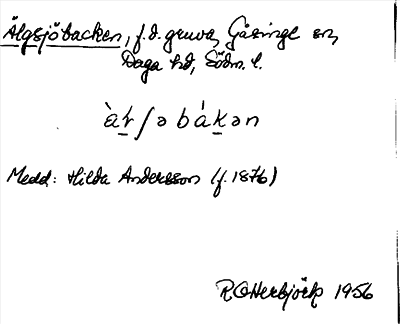 Älgsjöbacken, f.d. gruva, Gåsinge sn,
Daga hd, Södm. l.
ȧr̲ʃəbák̲ən
Medd: Hilda Andersson (f. 1876)
R O Herbjörk 1956